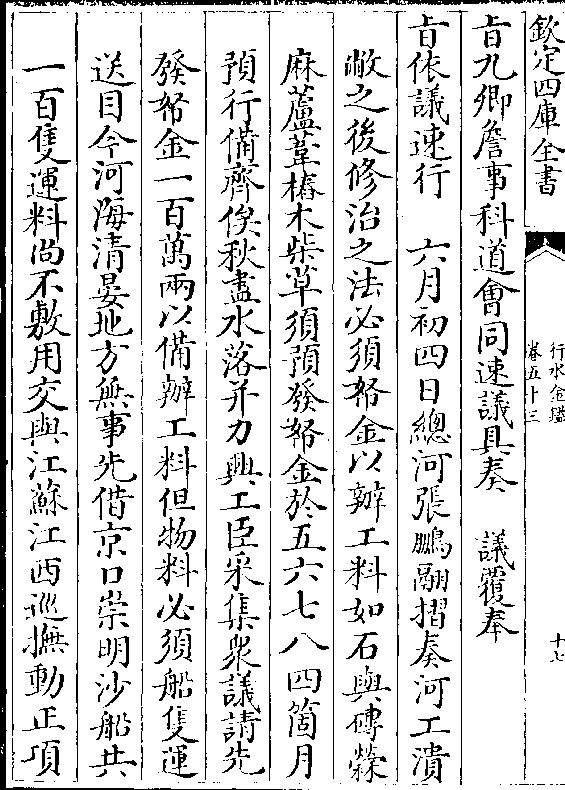 欽定四庫全書
行水金鑑
卷五十三
十七
旨九卿詹事科道會同速議具奏　議覆奉
旨依議速行　六月初四日總河張鵬翮摺奏河工潰
敝之後修治之法必須帑金以辦工料如石與磚檾
麻蘆葦樁木柴草須預發帑金於五六七八四箇月
預行備齊俟秋盡水落并力興工臣采集衆議請先
發帑金一百萬兩以備辦工料但物料必須船隻運
送目今河海清晏地方無事先借京口崇明沙船共
一百隻運料尚不敷用交與江蘇江西巡撫動正項